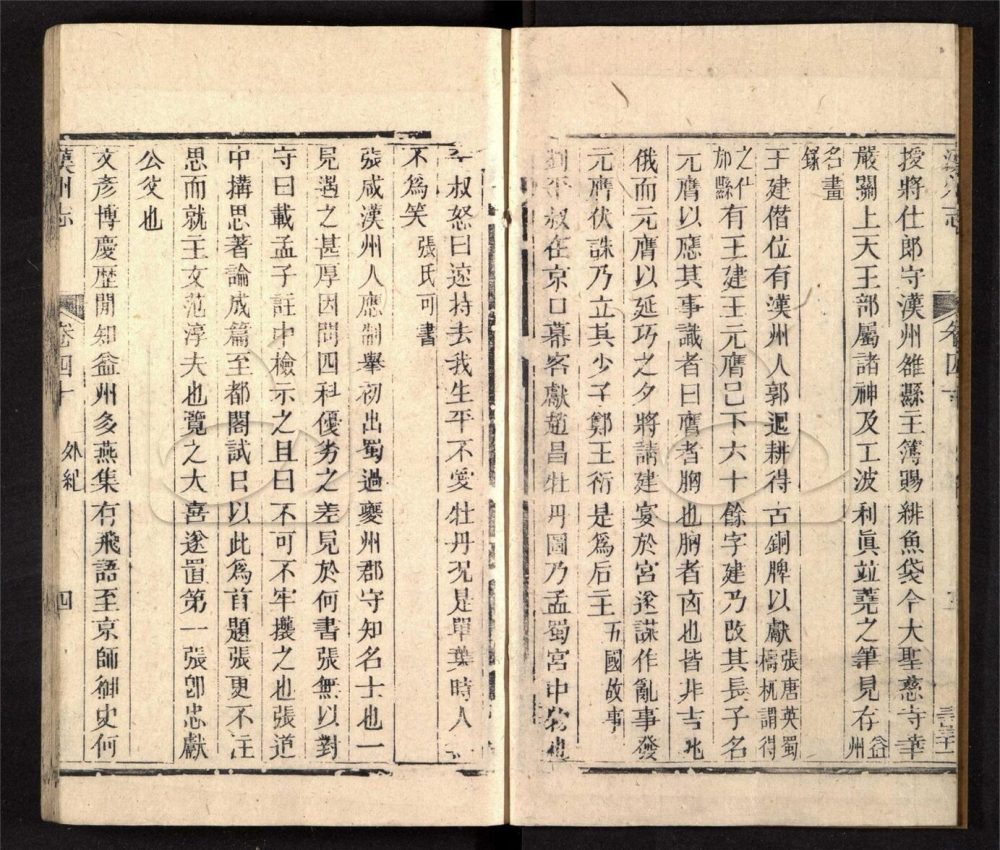 授將仕郎守漢州雒縣主簿賜緋魚袋今大聖慈寺華
嚴閣上天王部屬諸神及工波利眞竝堯之筆見存益州
名畫
錄
王建僣位有漢州人郭迴耕得古銅牌以獻張唐英蜀檮杌謂得
之什邡縣有王建王元膺已下六十餘字建乃改其長子名
元膺以應其事識者曰膺者胸也胸者凶也皆非吉兆
俄而元膺以延巧之夕將請建宴於宮遂謀作亂事發
元膺伏誅乃立其少子鄭王衍是爲后主五國故事
叔在京口幕客獻趙昌牡丹圖乃孟蜀宮中物
叔怒曰遠持去我生平不愛牡丹况是單葉時人
不爲笑張氏可書
張咸漢州人應制舉初出蜀過夔州郡守知名士也一
見遇之甚厚因問四科優劣之差見於何書張無以對
守曰載孟子註中檢示之且曰不可不牢攏之也張道
中搆思著論成篇至都閣試曰以此爲首題張更不注
思而就主文范淳夫也覽之大喜遂置第一張卽忠獻
公父也
文彥博慶歷間知益州多燕集有飛語至京師御史何
漢州志
卷四十
外紀
四